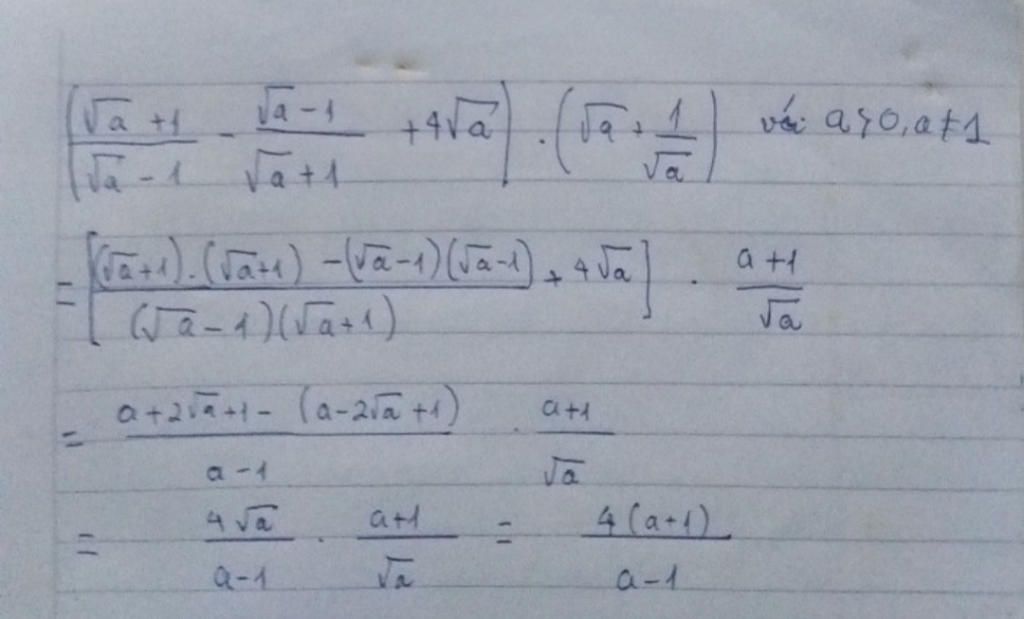 (\frac{\sqrt{a}+1}{\sqrt{a}-1} - \frac{\sqrt{a}-1}{\sqrt{a}+1} + 4\sqrt{a}) . (\sqrt{a} + \frac{1}{\sqrt{a}}) với a>0, a≠1
= [\frac{(\sqrt{a}+1).(\sqrt{a}+1) -(\sqrt{a}-1)(\sqrt{a}-1)}{(\sqrt{a}-1)(\sqrt{a}+1)} + 4\sqrt{a}] . \frac{a+1}{\sqrt{a}}
= \frac{a+2\sqrt{a}+1-(a-2\sqrt{a}+1)}{a-1} . \frac{a+1}{\sqrt{a}}
= \frac{4\sqrt{a}}{a-1} . \frac{a+1}{\sqrt{a}} = \frac{4(a+1)}{a-1}